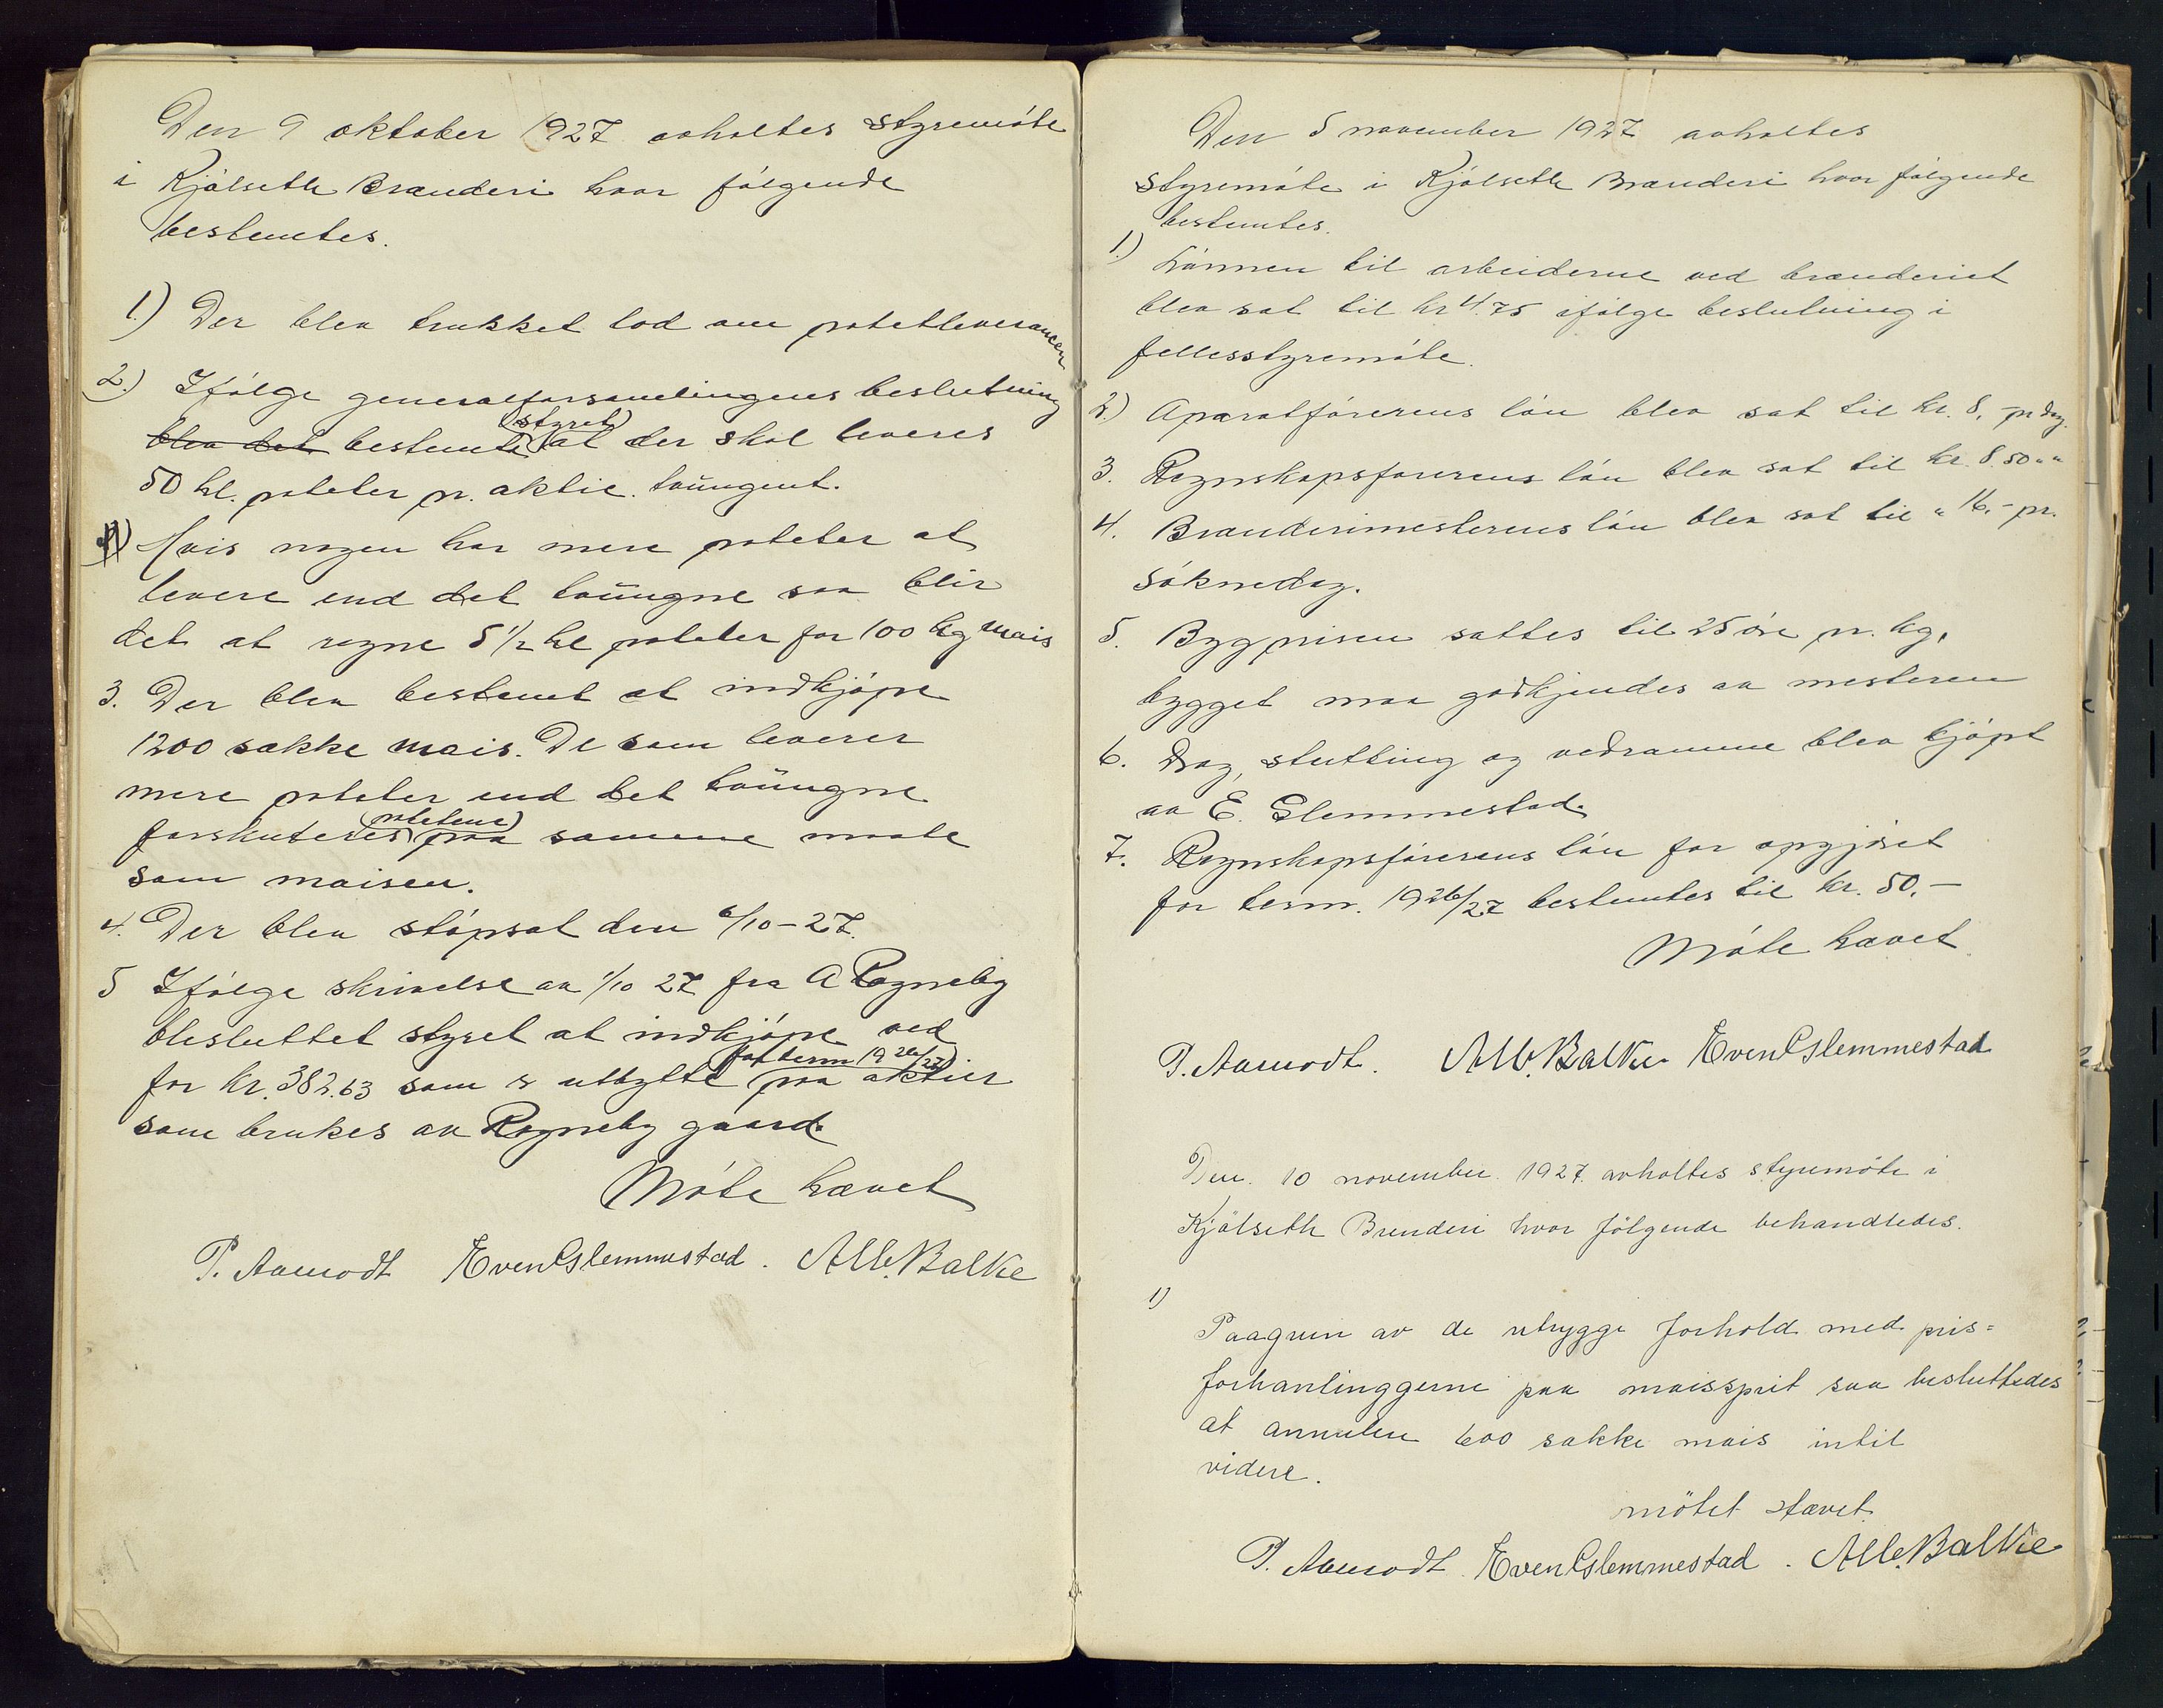 Den 9 oktober 1927 avholtes styremöte
i Kjölseth Brænderi hvor fölgende
bestemtes.
1.) Der blev trukket lod om potetleverancen
2.) Ifölge generalforsamlingens beslutning
blev det bestemte (styret) at der skal leveres
50 hl. poteter pr. aktie. tvungent.
Hvis nogen har mere poteter at
levere end det tvungne saa blir
det at regne 5 1/2 hl poteter for 100 kg mais
3. Der blev bestemt at indkjöpe
1200 sække mais. De som leverer
mere poteter end det tvungne
forskuteres (potetene) paa samme maate
som maisen.
4. Der blev stöpsat den 6/10-27.
5 Ifölge skrivelse av 1/10 27 fra A Rogneby
blesluttet styret at indkjöpe ved
for kr. 382.63 som er utbytte (for term 1926/27) paa aktier
som brukes av Rogneby gaard.
Möte hævet
P. Aamodt Even Glemmestad. Alb. Balke
Den 5 november 1927 avholtes
styremöte i Kjölseth Brænderi hvor fölgende
bestemtes.
1.) Lönnen til arbeiderne ved brænderiet
blev sat til kr 4.75 ifölge beslutning i
fellesstyremöte.
2.) Aparatförerens lön blev sat til kr. 8,- pr dag.
3. Regnskapsförerens lön blev sat til kr. 8.50 " "
4. Brænderimesterens lön blev sat til " 16,- pr.
söknedag.
5. Bygprisen sattes til 25 öre pr. kg,
bygget maa godkjendes av mesteren
6. Drag, stutting og vedramme blev kjöpt
av E. Glemmestad.
7. Regnskapsförerens lön for opgjöret
for term. 1926/27 bestemtes til kr. 50,-
Möte hævet
P. Aamodt. Alb. Balke Even Glemmestad
Den. 10 november. 1927. avholtes styremöte i
Kjölseth Brenderi hvor fölgende behandledes.
1)
Paagrun av de utrygge forhold med pris=
forhanlinggerne paa maissprit saa besluttedes
at annulere 600 sække mais intil
videre.
mötet hævet
P. Aamodt. Even Glemmestad. Alb. Balke